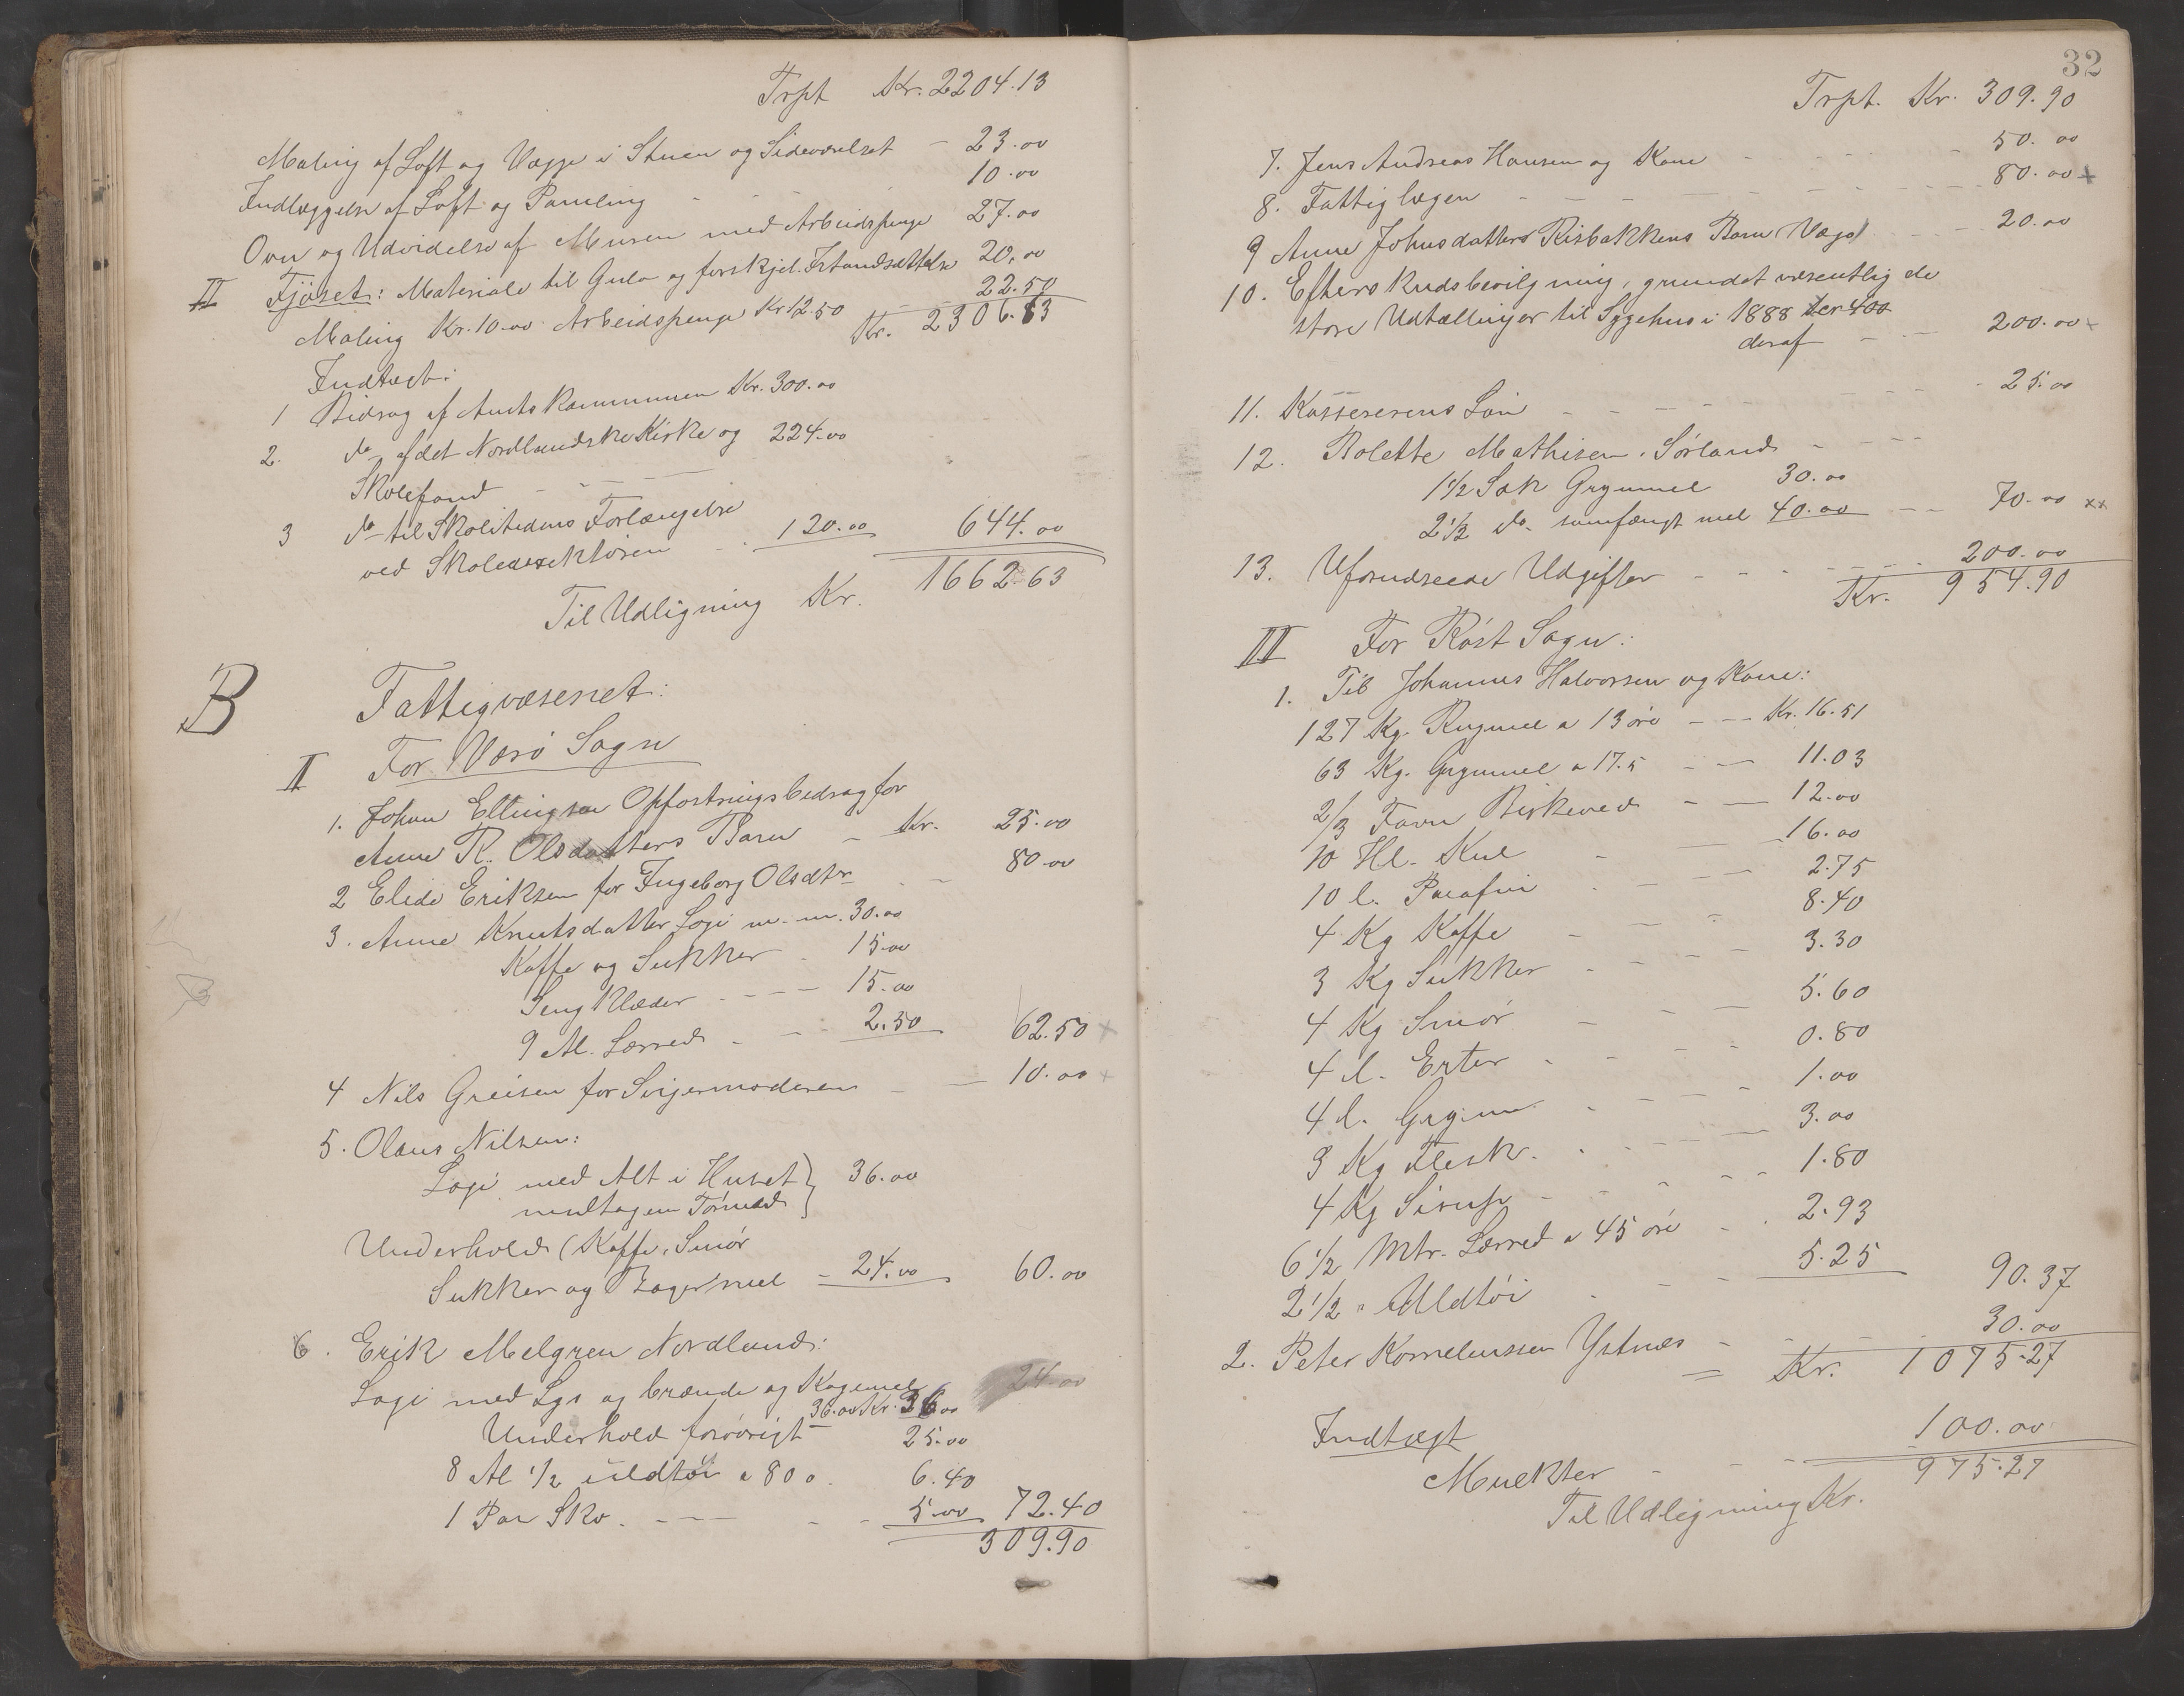 Trpt Kr. 2204.13
Maling af Loft og Vægge i Stuen og Sideværelset - 23.00
Indlæggelse af Loft og Paneling - - 10.00
Ovn og Udvidelse af Muren med Arbeidspenge 27.00
II Fjøset: Materiale til Gulv og forskjel. Istandsættelse 20.00
Maling Kr. 10.00 Arbeidspenge Kr 12.50 22.50
Kr. 2306.63
Indtægt:
1 Bidrag af Amtskommunen Kr. 300.00
2. do af det Nordlandske Kirke og 224.00
Skolefond - - - -
3 do til Skoletidens Forlængelse
ved Skoledirektøren - 120.00 644.00
Til Udligning Kr. 1662.63
B Fattigvæsenet:
II For Værø Sogn
1. Johan Ellingsen Opfostringsbidrag for
Anne R. Olsdatters Barn - Kr. 25.00
2 Elide Eriksen for Ingeborg Olsdtr - - 80.00
3. Anne Knutsdatter Logi m. m. 30.00
Kaffe og Sukker - 15.00
Sengklæder - - - - 15.00
9 Al. Lærred - - - 2.50 62.50 +
4 Nils Greisen for Svigermoderen - - 10.00 +
5. Olaus Nilsen:
Logi med Alt i Huset } 36.00
undtagen Tørved
Underhold (Kaffe, Smør
Sukker og Bagermel - 24.00 60.00
6. Erik Melgren Nordland:
Logi med Lys og brænde og Kogemel 24.00
36.00 Kr. 36.00
Underhold forøvrigt - 25.00
8 Al 1/2 uldtøi a 80 o. 6.40
1 Par Sko. - - - - - 5.00 72.40
309.90
32
Trpt. Kr. 309.90
7. Jens Andreas Hansen og Kone - - - - 50.00
8. Fattiglægen - - - - - - 80.00 +
9 Anne Johnsdatters Risbakkens Barn (Vægs) - - - 20.00
10. Efterskudsbevilgning, grundet væsentlig de
store Udtællinger til Sygehus i 1888 Kr 400
deraf - - 200.00 +
11. Kassererens Løn - - - - - - - 25.00
12. Bolette Mathisen, Sørland - - - -
1 1/2 Sæk Grynmel 30.00
2 1/2 do samfængt mel 40.00 - - 70.00 xx
13. Uforudseede Udgifter - - - - - - 200.00
Kr. 954.90
III For Røst Sogn:
1. Til Johannes Halvorsen og Kone:
127 Kg. Rugmel a 13 øre - - - Kr. 16.51
63 Kg. Grynmel a 17.5 - - 11.03
2/3 Favn Birkeved - - 12.00
10 Hl. Kul - - 16.00
10 l. Parafin - - - 2.75
4 Kg Kaffe - - - 8.40
3 Kg Sukker - - - - 3.30
4 Kg Smør - - - 5.60
4 l. Erter - - - - 0.80
4 l. Gryn - - - - 1.00
3 Kg Flesk. - - - - 3.00
4 Kg Sirup - - - - 1.80
6 1/2 Mtr. Lærred a 45 øre - - 2.93
2 1/2 " Uldtøi - - - 5.25 90.37
2. Peter Korneliussen Ystnes - - - - 30.00
Kr. 1075.27
Indtægt
Mulkter - - - 100.00
Til Udligning Kr. 975.27